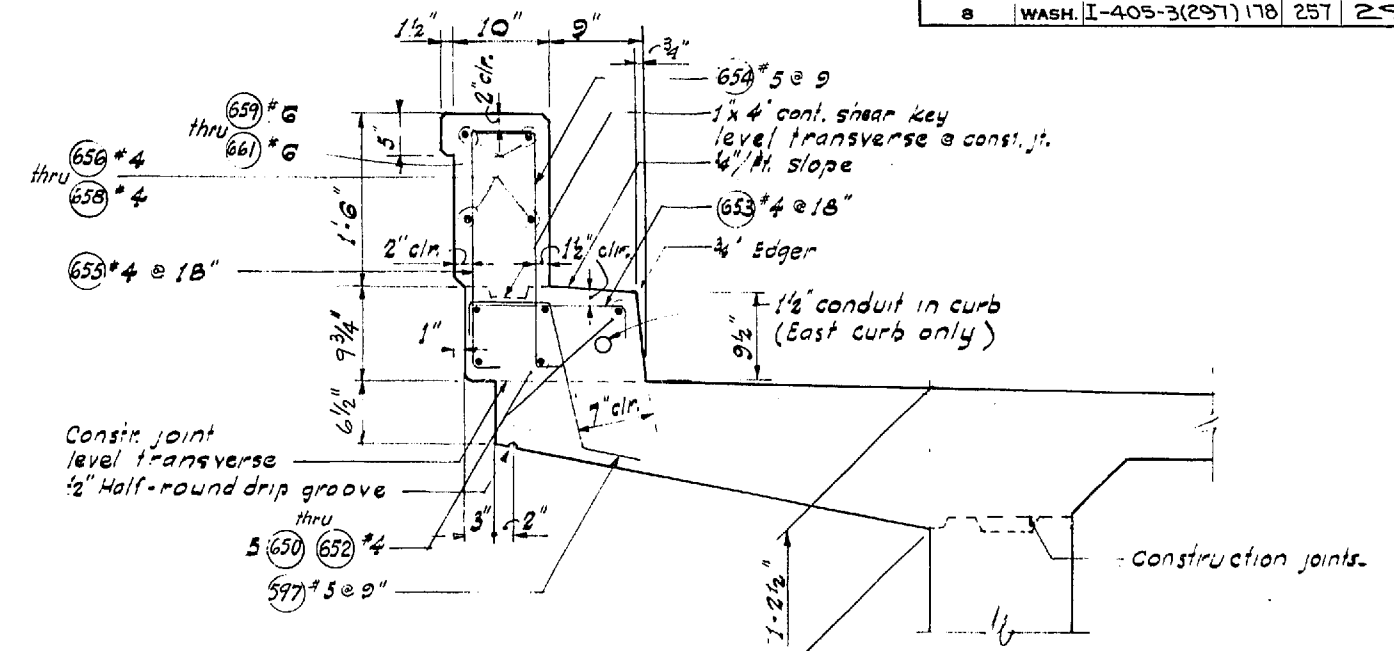 8 WASH. I-405-3(297)178 257
1½" 10" 9"
¾"
2" clr.
654 #5 @ 9
659 #6
thru
661 #6
1" x 4" cont. shear key
level transverse @ const. jt.
¼"/ft. slope
5"
656 #4
thru
658 #4
1'-6"
653 #4 @ 18"
2" clr. 1½" clr.
¾" Edger
655 #4 @ 18"
1½" conduit in curb
(East curb only)
9½"
1"
9¾"
6½"
7" clr.
Constr. joint
level transverse
½" Half-round drip groove
thru
5 650 652 #4
3" 2"
597 #5 @ 9"
1-2½"
Construction joints.